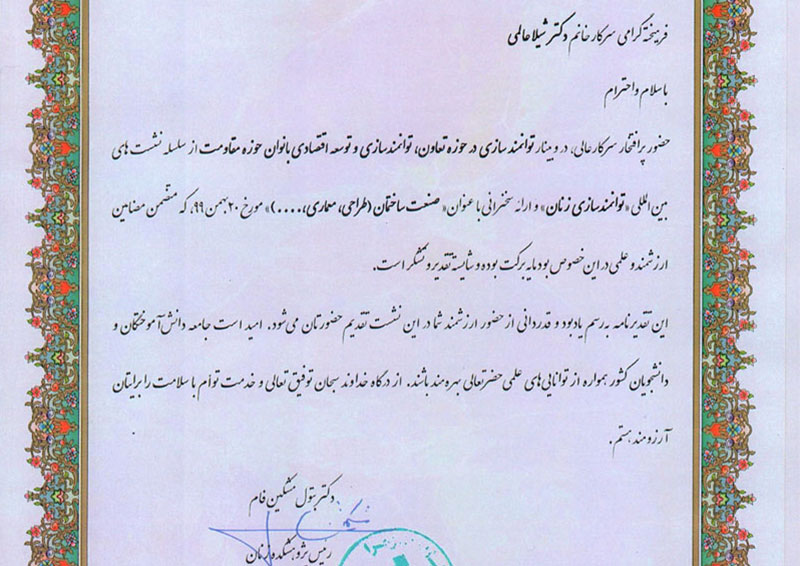 فرهیخته گرامی سرکار خانم دکتر شیلا عالمی
با سلام و احترام
حضور پرافتخار سرکارعالی، در وبینار توانمند سازی در حوزه تعاون، توانمندسازی و توسعه اقتصادی بانوان حوزه مقاومت از سلسله نشست های
بین المللی «توانمندسازی زنان» و ارائه سخنرانی با عنوان «صنعت ساختمان (طراحی، معماری،....)» مورخ ۲۰ بهمن ۹۹، که متضمن مضامین
ارزشمند و علمی در این خصوص بود مایه برکت بوده و شایسته تقدیر و تشکر است.
این تقدیرنامه به رسم یادبود و قدردانی از حضور ارزشمند شما در این نشست تقدیم حضورتان می شود. امید است جامعه دانش آموختگان و
دانشجویان کشور همواره از توانایی های علمی حضرتعالی بهره مند باشند. از درگاه خداوند سبحان توفیق تعالی و خدمت توأم با سلامت را برایتان
آرزومند هستم.
دکتر بتول مشکین فام
رئیس پژوهشکده زنان